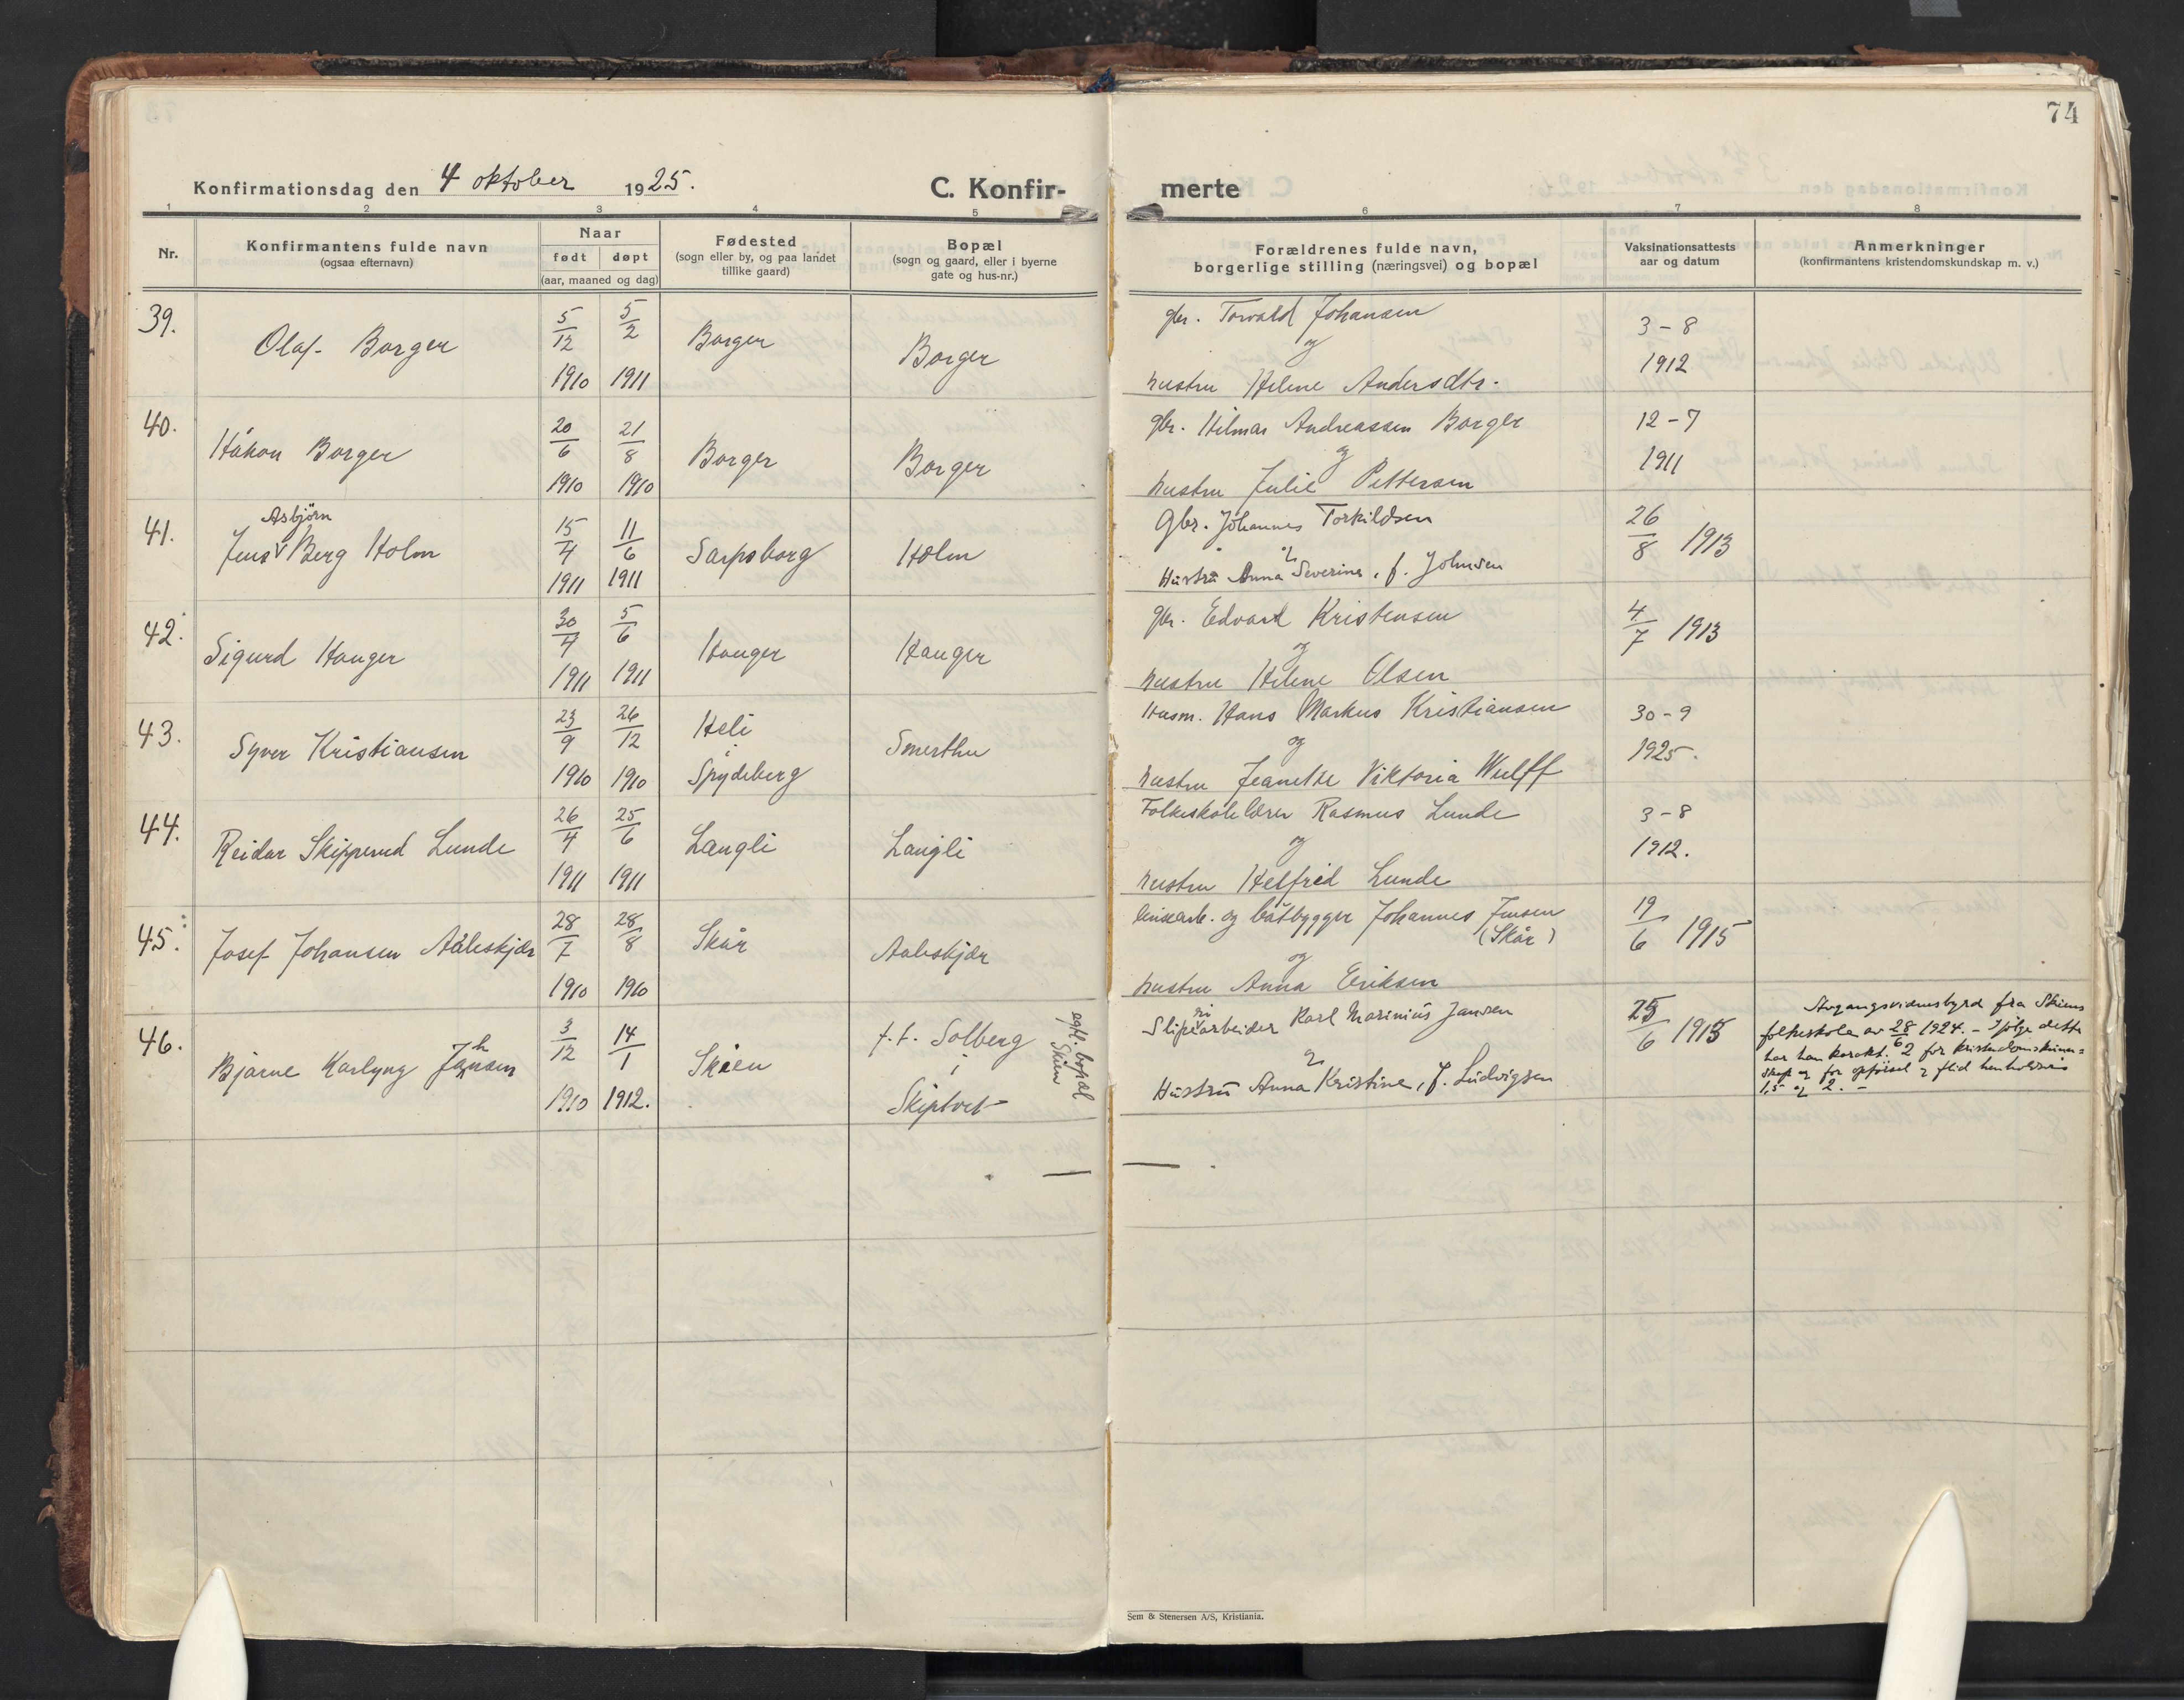 74
Konfirmationsdag den 4 oktober 1925.
C. Konfir-
merte
1 2 3 4 5 6 7 8
Nr.
Konfirmantens fulde navn
(ogsaa efternavn)
Naar
født døpt
(aar, maaned og dag)
Fødested
(sogn eller by, og paa landet
tillike gaard)
Bopæl
(sogn og gaard, eller i byerne
gate og hus-nr.)
Forældrenes fulde navn,
borgerlige stilling (næringsvei) og bopæl
Vaksinationsattests
aar og datum
Anmerkninger
(konfirmantens kristendomskundskap m. v.)
39.
Olaf Borger
5/12 1910
5/2 1911
Borger
Borger
gbr. Torvald Johansen
og
hustru Helene Andersdtr.
3-8
1912
40.
Håkon Borger
20/6 1910
21/8 1910
Borger
Borger
gbr. Hilmar Andreassen Borger
og
hustru Julie Pettersen
12-7
1911
41.
Asbjörn
Jens Berg Holm
15/4 1911
11/6 1911
Sarpsborg
Holm
Gbr. Johannes Torkildsen
og
Hustru Anna Severine, f. Johnsen
26/8 1913
42.
Sigurd Hauger
30/4 1911
5/6 1911
Hauger
Hauger
gbr. Edvard Kristensen
og
hustru Helene Olsen
4/7 1913
43.
Syver Kristiansen
23/9 1910
26/12 1910
Heli
i
Spydeberg
Smerthu
Husm. Hans Markus Kristiansen
og
hustru Jeanette Viktoria Wulff
30-9
1925.
44.
Reidar Skipperud Lunde
26/4 1911
25/6 1911
Langli
Langli
Folkeskolelærer Rasmus Lunde
og
hustru Helfrid Lunde
3-8
1912.
45.
Josef Johansen Aaleskjær
28/7 1910
28/8 1910
Skår
Aaleskjær
linsearb. og båtbygger Johannes Jensen
(Skår)
og
hustru Anna Eriksen
19/6 1915
46.
Bjarne Karlyng Jansen
h
3/12 1910
14/1 1912.
Skien
t.t. Solberg
i
Skiptvet
egtl. bopæl
Skien
Sliperiarbeider Karl Marinius Jansen
og
Hustru Anna Kristine, f. Ludvigsen
25/6 1915
Avgangsvidnesbyrd fra Skiens
folkeskole av 28/6 1924. – Ifølge dette
har han karakt. 2 for kristendomskunn=
skap og for opförsel og flid henholdsvis
1,5 og 2. –
Sem & Stenersen A/S, Kristiania.